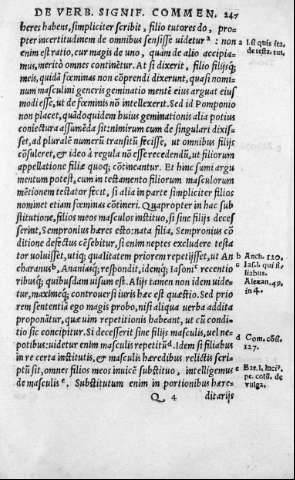 DE VERB. SIGNIF. COMMEN. 247
heres habent, simpliciter scribit, filio tutores do, pro-
pter incertitudinem de omnibus sensisse uidetur a : non
enim est ratio, cur magis de uno, quàm de alio accipia-
mus, meritò omnes continentur. At si dixerit, filio filijsq́;
meis, quidã fœminas non cõprendi dixerunt, quasi nomi-
num masculini generis geminatio mentẽ eius arguat eius
modi esse, ut de fœminis nõ intellexerit. Sed id Pomponio
non placet, quãdoquidem huius geminationis alia potius
coniectura assumẽda sit: nimirum cum de singulari dixis-
set, ad pluralẽ numerũ transitũ fecisse, ut omnibus filijs
cõsuleret, & ideo à regula nõ esse recedendũ, ut filiorum
appellatione filiæ quoq; cõtineantur. Et hinc sumi argu-
mentum potest, cum in testamento filiorum masculorum
mẽtionem testator fecit, si alia in parte simpliciter filios
nominet etiam fœminas cõtineri. Quapropter in hac sub
stitutione, filios meos masculos instituo, si sine filijs decef
serint, Sempronius hæres esto: nata filia, Sempronius cõ
ditione defectus cẽsebitur, si enim neptes excludere testa
tor uoluisset, utiq; qualitatem priorem repetijsset, ut An
charanus b, Ananiasq́; respondit, idemq́; Iasoni c recentio
ribusq́; quibusdam uisum est. Alijs tamen non idem uide-
tur, maximeq́; controuersi iuris hæc est quæstio. Sed prio
rem sententiã ego magis probo, nisi aliqua uerba addita
proponãtur, quæ uim repetitionis habeant, ut cũ condi-
tio sic concipitur. Si decesserit sine filijs masculis, uel ne-
potibus: uidetur enim masculi repetitũ d. Idem si filiabus
in re certa institutis, & masculis hæredibus relictis scri-
ptũ sit, omnes filios meos inuicẽ substituo, intelligemus
de masculis e, Substitutum enim in portionibus hære
Q 4 ditarijs
a l. si quis ita.
de testa. tut.
b Anch. 120.
c Ias. l. qui si-
liabus.
Alexan. 49.
in 4.
d Corn. cõsi.
127.